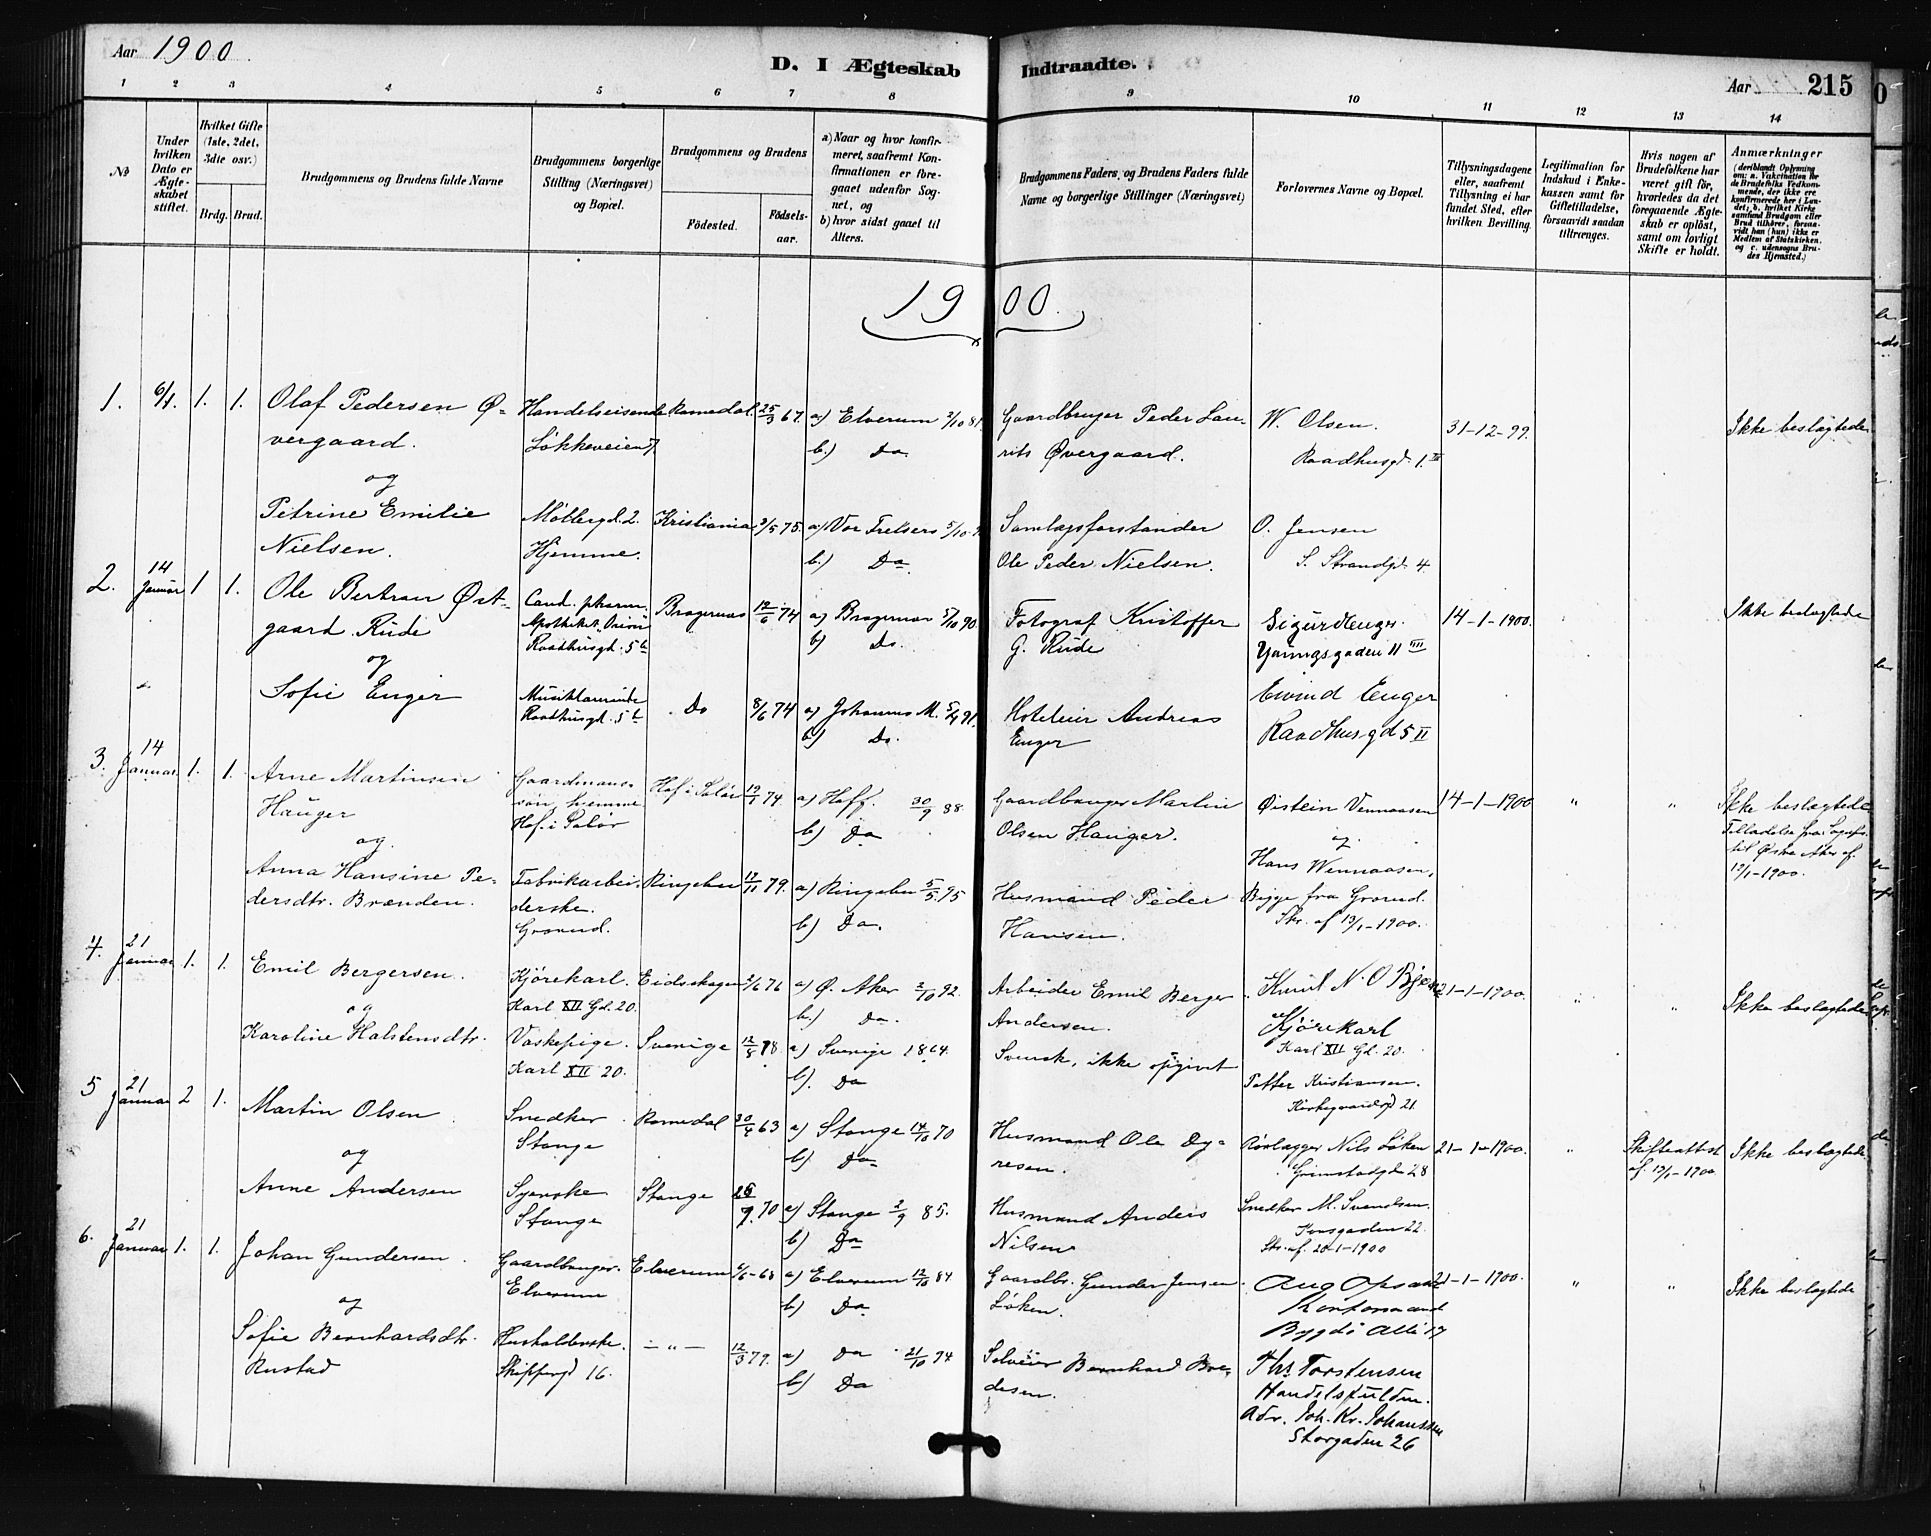 Aar 1900
D. I Ægteskab Indtraadte.
Aar 215
1 2 3 4 5 6 7 8 9 10 11 12 13 14
No
Under hvilken Dato er Ægteskabet stiftet.
Hvilket Gifte (1ste, 2det, 3die osv.)
Brdg. Brud.
Brudgommens og Brudens fulde Navne
Brudgommens borgerlige Stilling (Næringsvei) og Bopæl.
Brudgommens og Brudens
Fødested.
Fødselsaar.
a) Naar og hvor konfirmeret, saafremt Konfirmationen er foregaaet udenfor Sognet, og
b) hvor sidst gaaet til Alters.
Brudgommens Faders og Brudens Faders fulde Navne og borgerlige Stillinger (Næringsvei)
Forlovernes Navne og Bopæl.
Tillysningsdagene eller, saafremt Tillysning ei har fundet Sted, efter hvilken Bevilling.
Legitimation for Indskud i Enkekassen samt for Giftetilladelse, forsaavidt saadan tiltrænges.
Hvis nogen af Brudefolkene har været gift før, hvorledes da det foregaaende Ægteskab er opløst, samt om lovligt Skifte er holdt.
Anmærkninger (deriblandt Oplysning om: a. Vakcination for de Brudefolks Vedkommende, der ikke ere konfirmerede her i Landet; b. hvilket Kirkesamfund Brudgom eller Brud tilhører, forsaavidt han (hun) ikke er Medlem af Statskirken, og c. udensogns Brudes Hjemsted.)
1900.
1. 6/1. 1. 1.
Olaf Pedersen Ø-
vergaard.
og
Handelsreisende
Løkkeveien 7
Romedal. 25/3 67.
a) Elverum 2/10 81.
b.) Do.
Gaardbruger Peder Lau-
rits Øvergaard.
W. Olsen.
Raadhusgd. 1. III
31-12-99.
Ikke beslægtede
Petrine Emilie
Nielsen.
Møllergd. 2.
Hjemme.
Kristiania 3/5 75.
a) Vor Frelsers 5/10
b.) Do.
Samlagsforstander
Ole Peder Nielsen.
O. Jensen
S. Strandgd. 4.
2. 14 Januar 1 1.
Ole Bertran Øst-
gaard Rude
og
Cand. pharm.
Raadhusgd. 5b
Bragernæs 12/6 74
a) Bragernæs 5/10 90.
b) Do.
Fotograf Kristoffer
G. Rude
Sigurd Enger
Youngsgaden 11 III
14-1-1900.
Ikke beslægtede
Sofie Enger
Raadhusgd. 5b
Do 8/6 74
a) Johannes M. 5/4 91.
b) Do.
Hoteleier Andreas
Enger
Eivind Enger
Raadhusgd 5 II
3. 14 Januar 1. 1.
Arne Martinsen
Hauger
og
Gaardmans-
søn, hjemme
Hof i Solør
Hof i Solør 19/1 74.
a) Hoff. 30/9 88.
b) Do
Gaardbruger Martin
Olsen Hauger.
Øistein Vennaasen
og
14-1-1900 " "
Ikke beslægtede
Tilladelse fra Sognepr.
til Østre Aker af
12/1-1900.
Anna Hansine Pe-
dersdtr. Brænden.
Fabrikarbei-
derske.
Grorud.
Ringebu 12/11 79.
a) Ringebu 5/5 95
b) Do.
Husmand Peder
Hansen.
Hans Wennaasen,
Begge fra Grorud.
Skr. af 13/1-1900.
4. 21 Januar 1. 1.
Emil Bergersen.
og
Kjørekarl.
Karl XII Gd. 20.
Eidsskogen 2/6 76
a) Ø. Aker 2/10 92.
b.) Do.
Arbeider Emil Berger
Andersen.
Knut N. O. Bjerke
Kjørekarl
Karl XII Gd. 20.
21-1-1900. " "
Ikke beslægtede
Karoline Halstensdtr.
Vaskepige.
Karl XII 20.
Sverige 12/8 78.
a) Sverige 1864.
b). Do
Svensk, ikke opgivet
Petter Kristiansen.
Kirkegaardsgd 21.
5 21 Januar 2 1.
Martin Olsen
og
Snedker
Stange
Romedal 30/4 63
a) Stange 14/10 70
b) Do
Husmand Ole Dy-
resen.
Rørlægger Nils Løken
Grimstadgd. 28
21-1-1900. "
Skifteattest
af 13/1-1900.
Ikke beslægtede
Anne Andersen
Syerske
Stange
Stange 26/9. 70
a) Stange 2/9 85.
b) Do
Husmand Anders
Nilsen
Snedker M. Svendsen.
Skr. af 20-1-1900
6. 21 Januar 1. 1.
Johan Gundersen
og
Gaardbruger.
Elverum
Elverum 6/6-68
a) Elverum 12/10 84
b) Do
Gaardbr. Gunder Jensen
Løken.
Aug Opsahl
Kontormand
Bygdø Allé 17
21-1-1900. " "
Ikke beslægtede
Sofie Bernhardsdtr.
Rustad
Husholderske.
Skippergd 16.
- " - 12/3 79.
a) Do 21/10 94
b) Do
Selveier Bernhard Bre-
desen.
Ths Torstensen
Handelsfuldm.
Adr. Joh. Kr. Johanssen
Storgaden 26